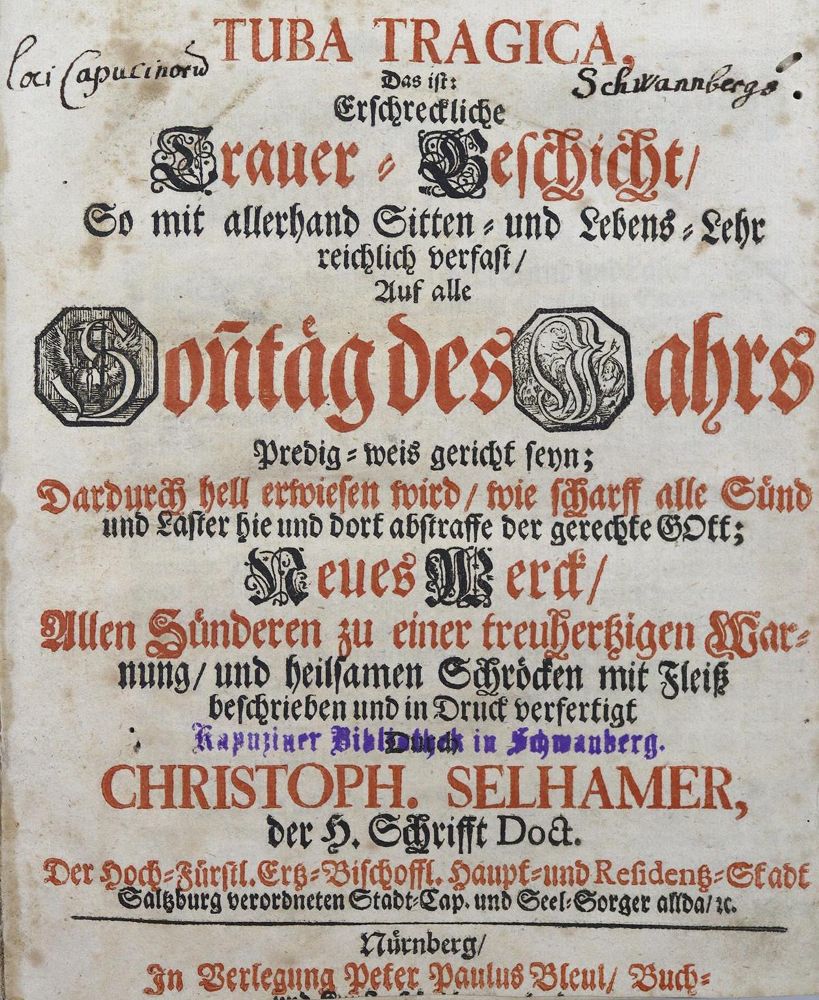 TUBA TRAGICA,
loci Capucinorũ
Schwannbergs
Das ist:
Erschreckliche
Trauer-Geschicht/
So mit allerhand Sitten- und Lebens-Lehr
reichlich verfast/
Auf alle
Soñtäg des Jahrs
Predig-weis gericht seyn;
Dardurch hell erwiesen wird/ wie scharff alle Sünd
und Laster hie und dort abstraffe der gerechte GOtt;
Neues Werck/
Allen Sünderen zu einer treuhertzigen War-
nung/ und heilsamen Schröcken mit Fleiß
beschrieben und in Druck verfertigt
Kapuziner Bibliothek in Schwanberg.
Durch
CHRISTOPH. SELHAMER,
der H. Schrifft Doct.
Der Hoch-Fürstl. Ertz-Bischoffl. Haupt- und Residentz-Stadt
Saltzburg verordneten Stadt-Cap. und Seel-Sorger allda/ ꝛc.
Nürnberg/
In Verlegung Peter Paulus Bleul/ Buch-
und